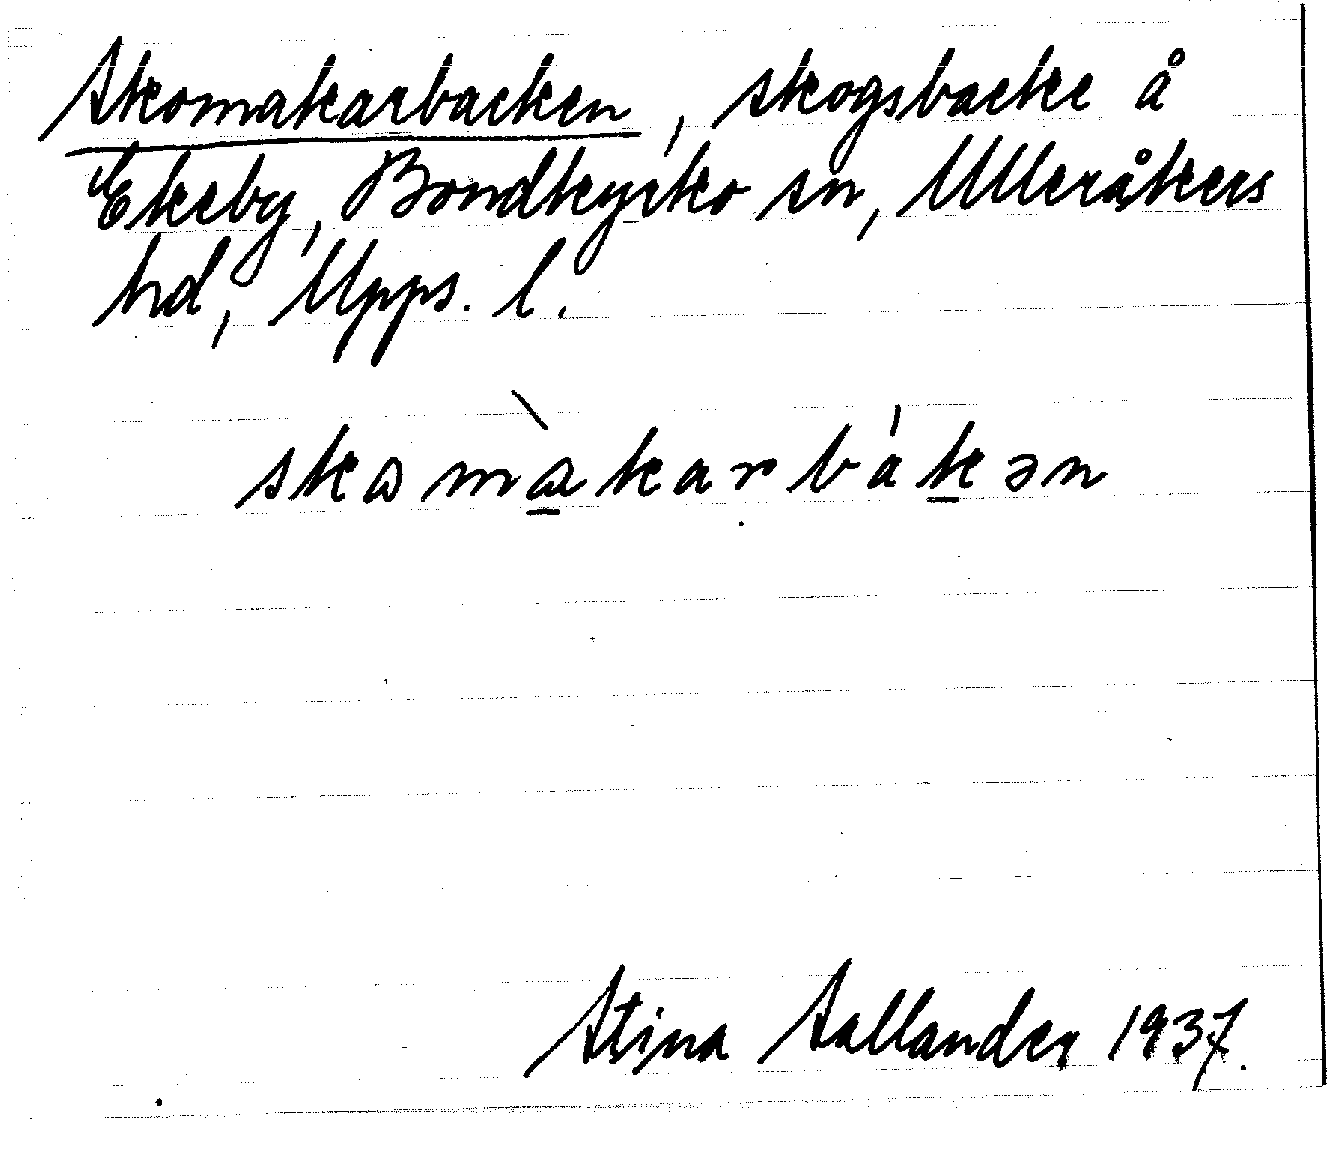 Skomakarbacken, skogsbacke å
Ekeby, Bondkyrko sn, Ulleråkers
hd, Upps. l.
skɷmɑ̠̀karbák̠ən
Stina Sallander 1937.